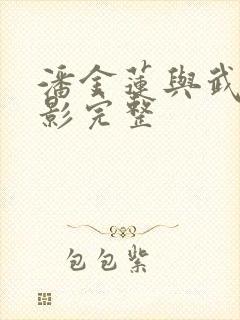 潘金蓮與武
影完整
包包紫